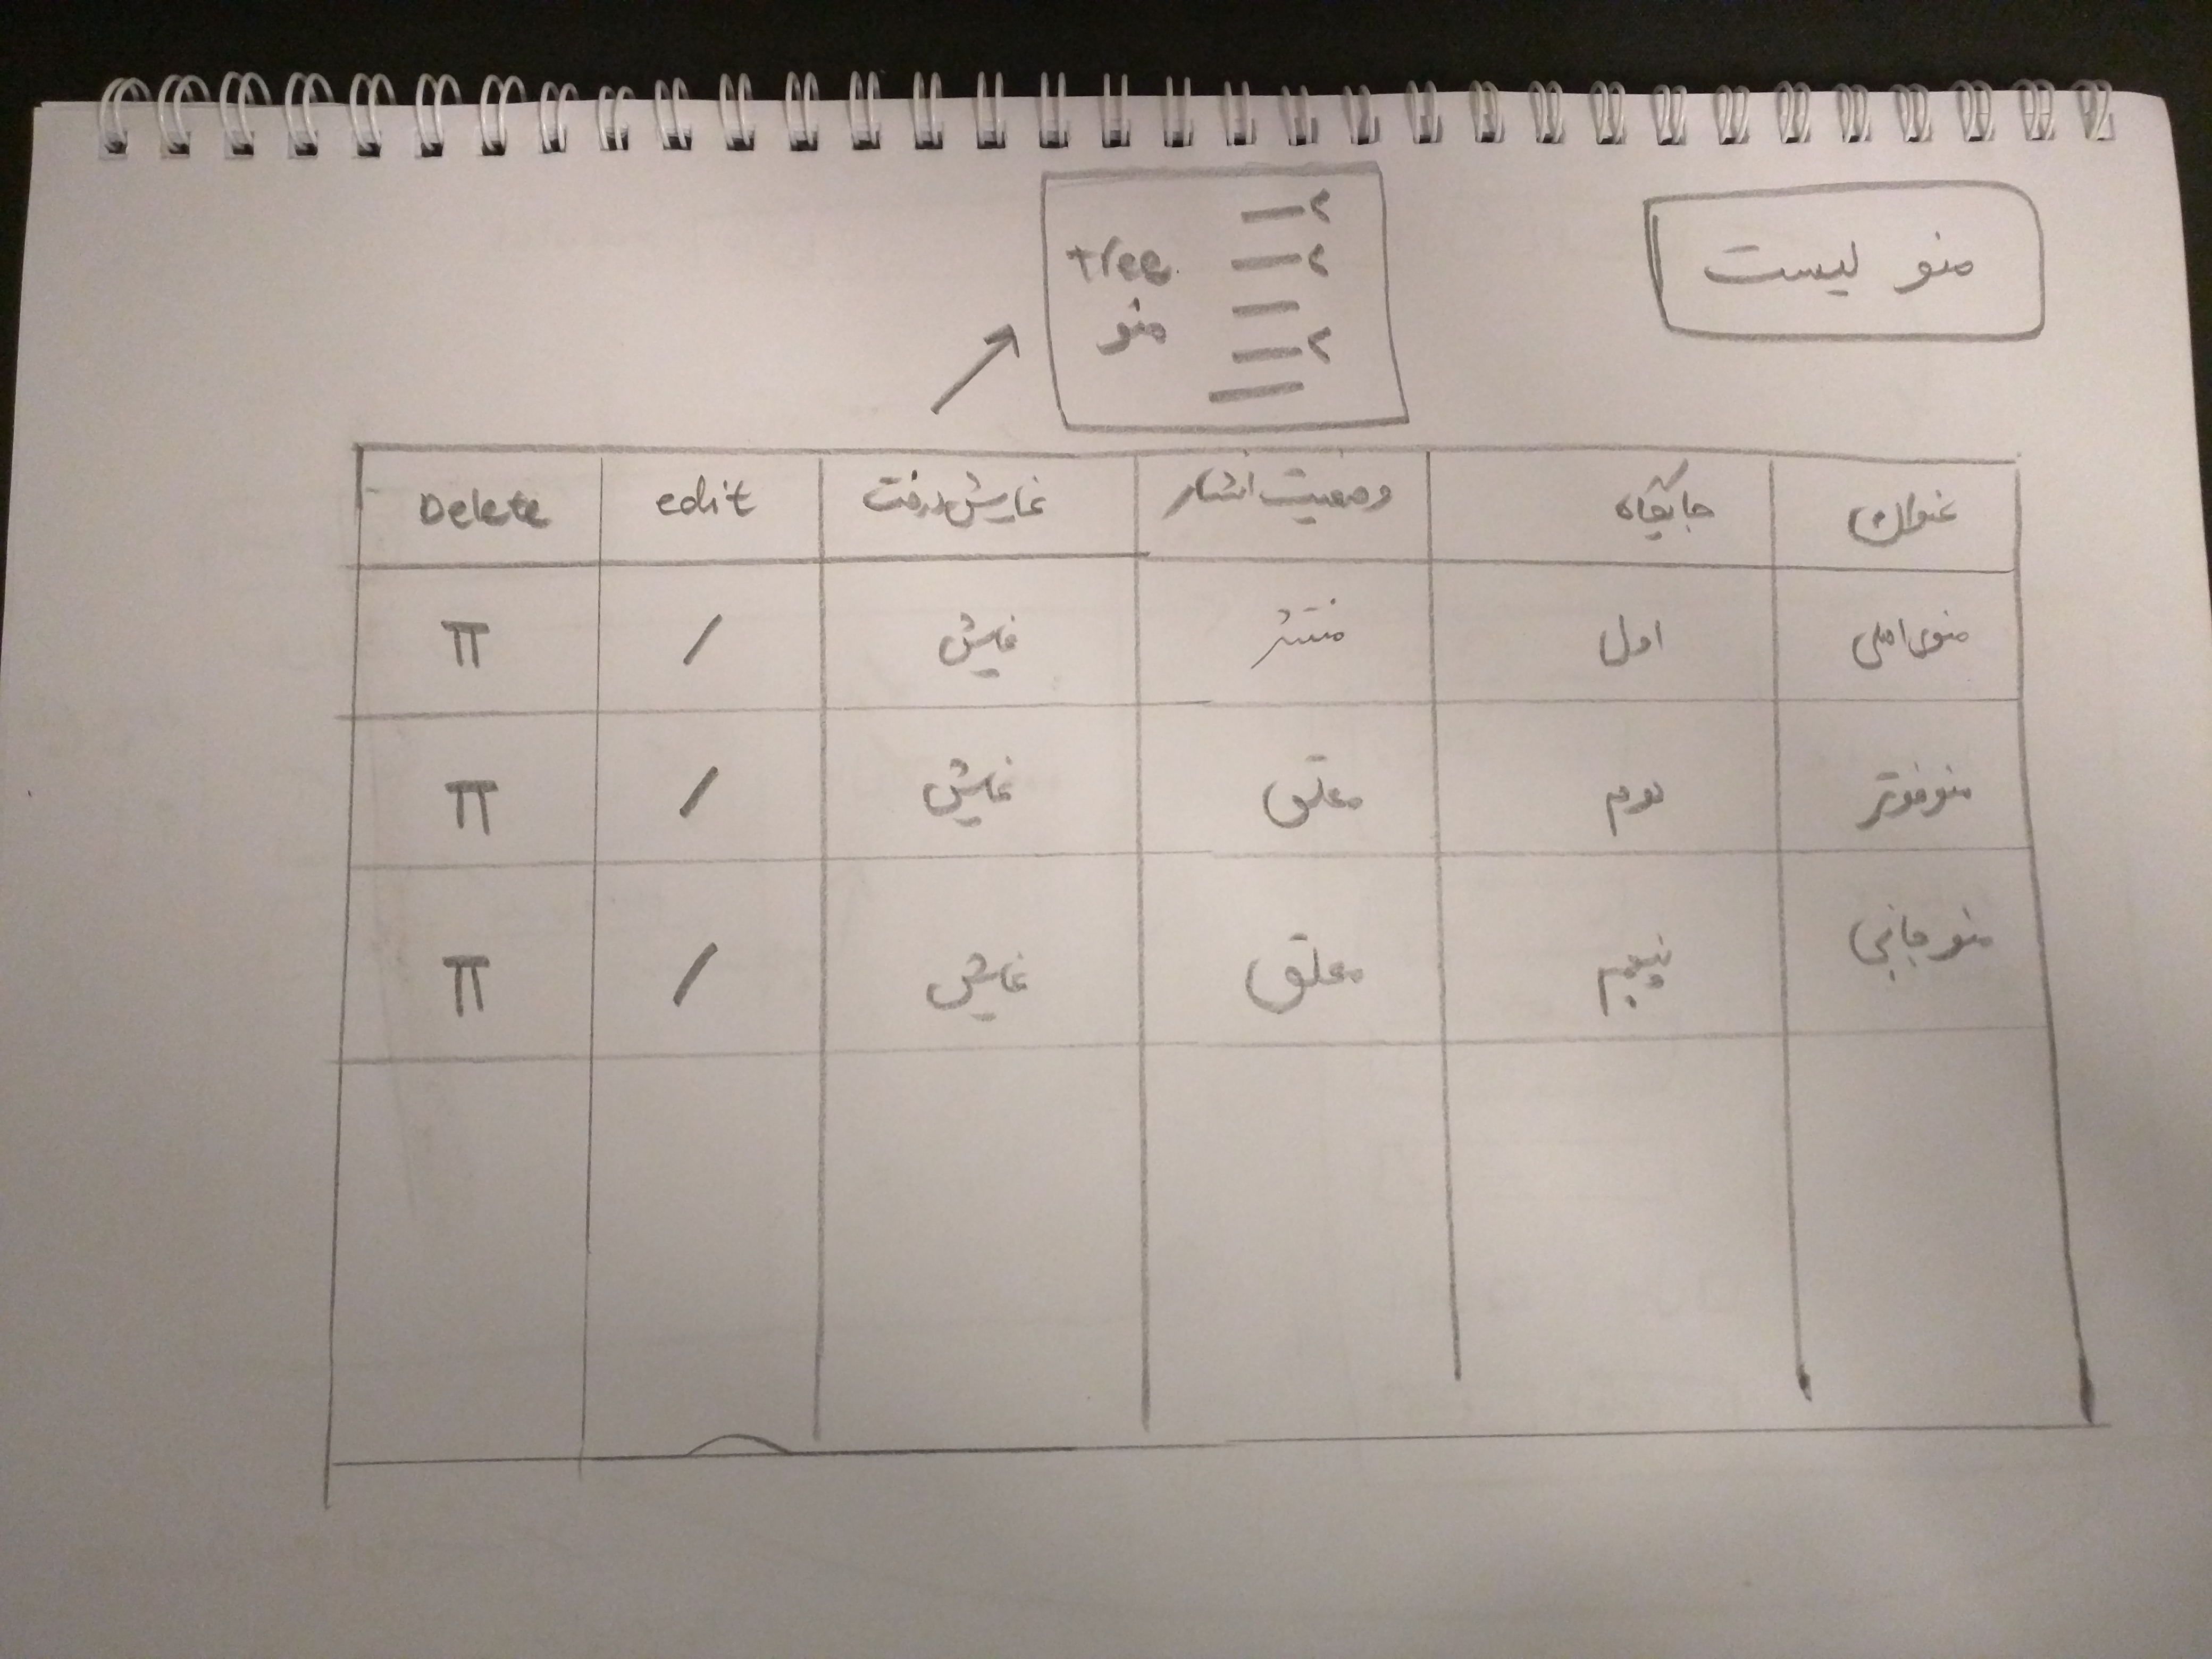 منو لیست
tree
منو
عنوان جایگاه وضعیت انتشار نمایش درخت edit Delete
منوی اصلی اول منتشر نمایش
منو فوتر دوم معلق نمایش
منو جانبی پنجم معلق نمایش